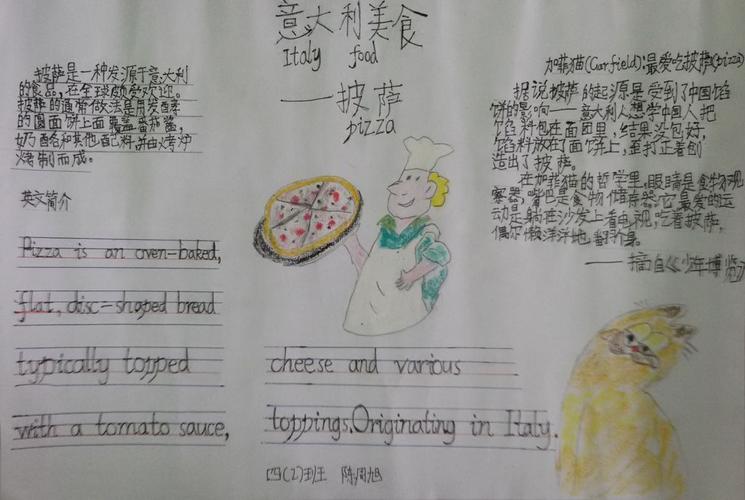 意大利美食
Italy food
——披萨
pizza
披萨是一种发源于意大利
的食品，在全球颇受欢迎。
披萨的通常做法是用发酵
的圆面饼上面覆盖番茄酱，
奶酪和其他配料，并由烤炉
烤制而成。
英文简介
Pizza is an oven-baked,
flat, disc-shaped bread
typically topped
with a tomato sauce,
cheese and various
toppings.Originating in Italy.
加菲猫(Garfield):最爱吃披萨(pizza)
据说披萨的起源是受到了中国馅
饼的影响——意大利人想学中国人把
馅料包在面团里，结果没包好，
馅料放在了面饼上，歪打正着创
造出了披萨。
在加菲猫的哲学里，眼睛是食物视
察器，嘴巴是食物储存器，它最爱的运
动是躺在沙发上看电视，吃着披萨，
偶尔懒洋洋地翻个身。
——摘自《少年博览》
四(2)班 陈周旭